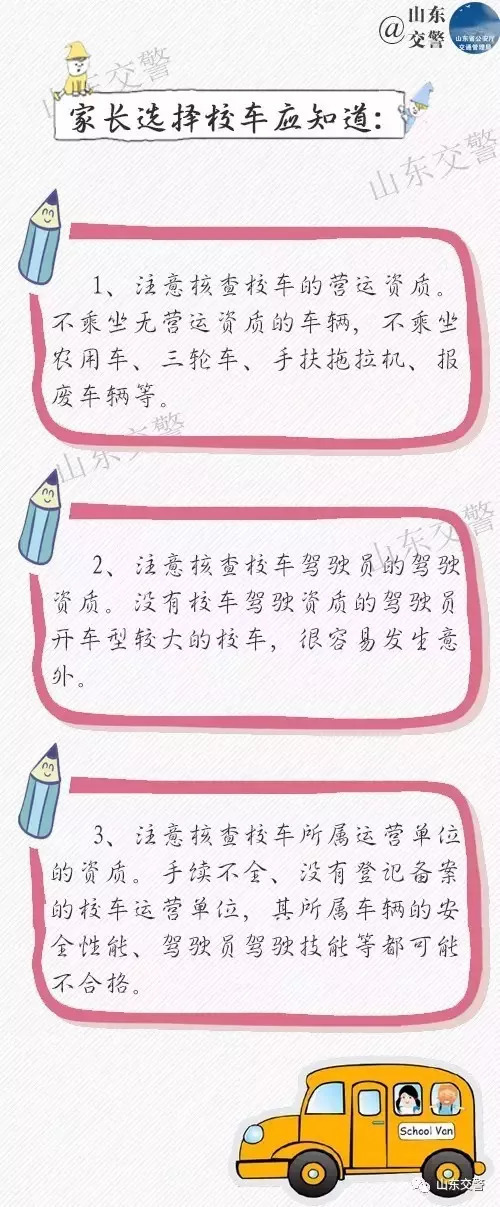 @山东
交警
山东省公安厅
交通管理局
山东交警
家长选择校车应知道：
山东交警
1、注意核查校车的营运资质。
不乘坐无营运资质的车辆，不乘坐
农用车、三轮车、手扶拖拉机、报
废车辆等。
山东交警
山东交警
2、注意核查校车驾驶员的驾驶
资质。没有校车驾驶资质的驾驶员
开车型较大的校车，很容易发生意
外。
3、注意核查校车所属运营单位
的资质。手续不全、没有登记备案
的校车运营单位，其所属车辆的安
全性能、驾驶员驾驶技能等都可能
不合格。
School Van
山东交警